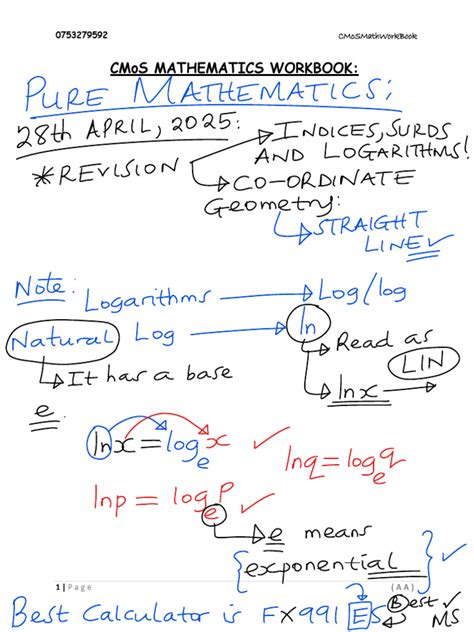 0753279592 CMoSMathWorkBook
CMoS MATHEMATICS WORKBOOK:
PURE MATHEMATICS:
28th APRIL, 2025:
*REVISION → INDICES, SURDS
AND LOGARITHMS!
↳ CO-ORDINATE
Geometry:
↳ STRAIGHT
LINE ✓
Note: Logarithms → Log/log
Natural Log → ln
↳ Read as
LIN
↳ It has a base
e.
↳ lnx →
lnx = logₑx ✓
lnq = logₑq ✓
lnp = logₑP ✓
↳ e means
{exponential} ✓
1 | Page (AA)
Best Calculator is FX991 ES
Best ✓
MS